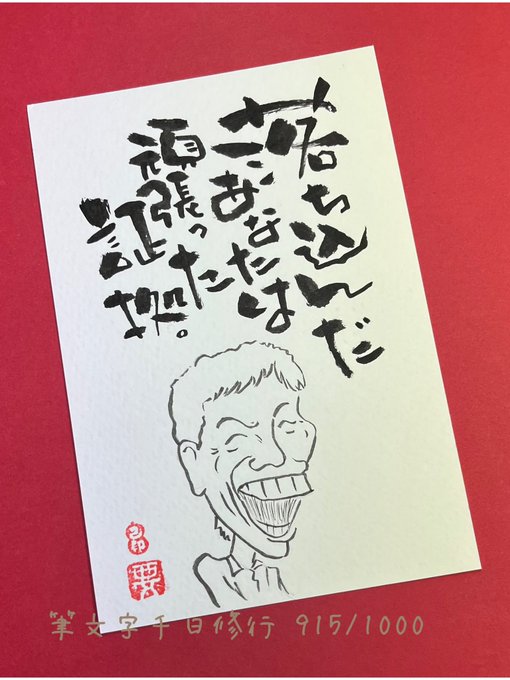 落ち込んだ
あなたは
頑張った
証拠。
筆文字千日修行 915/1000